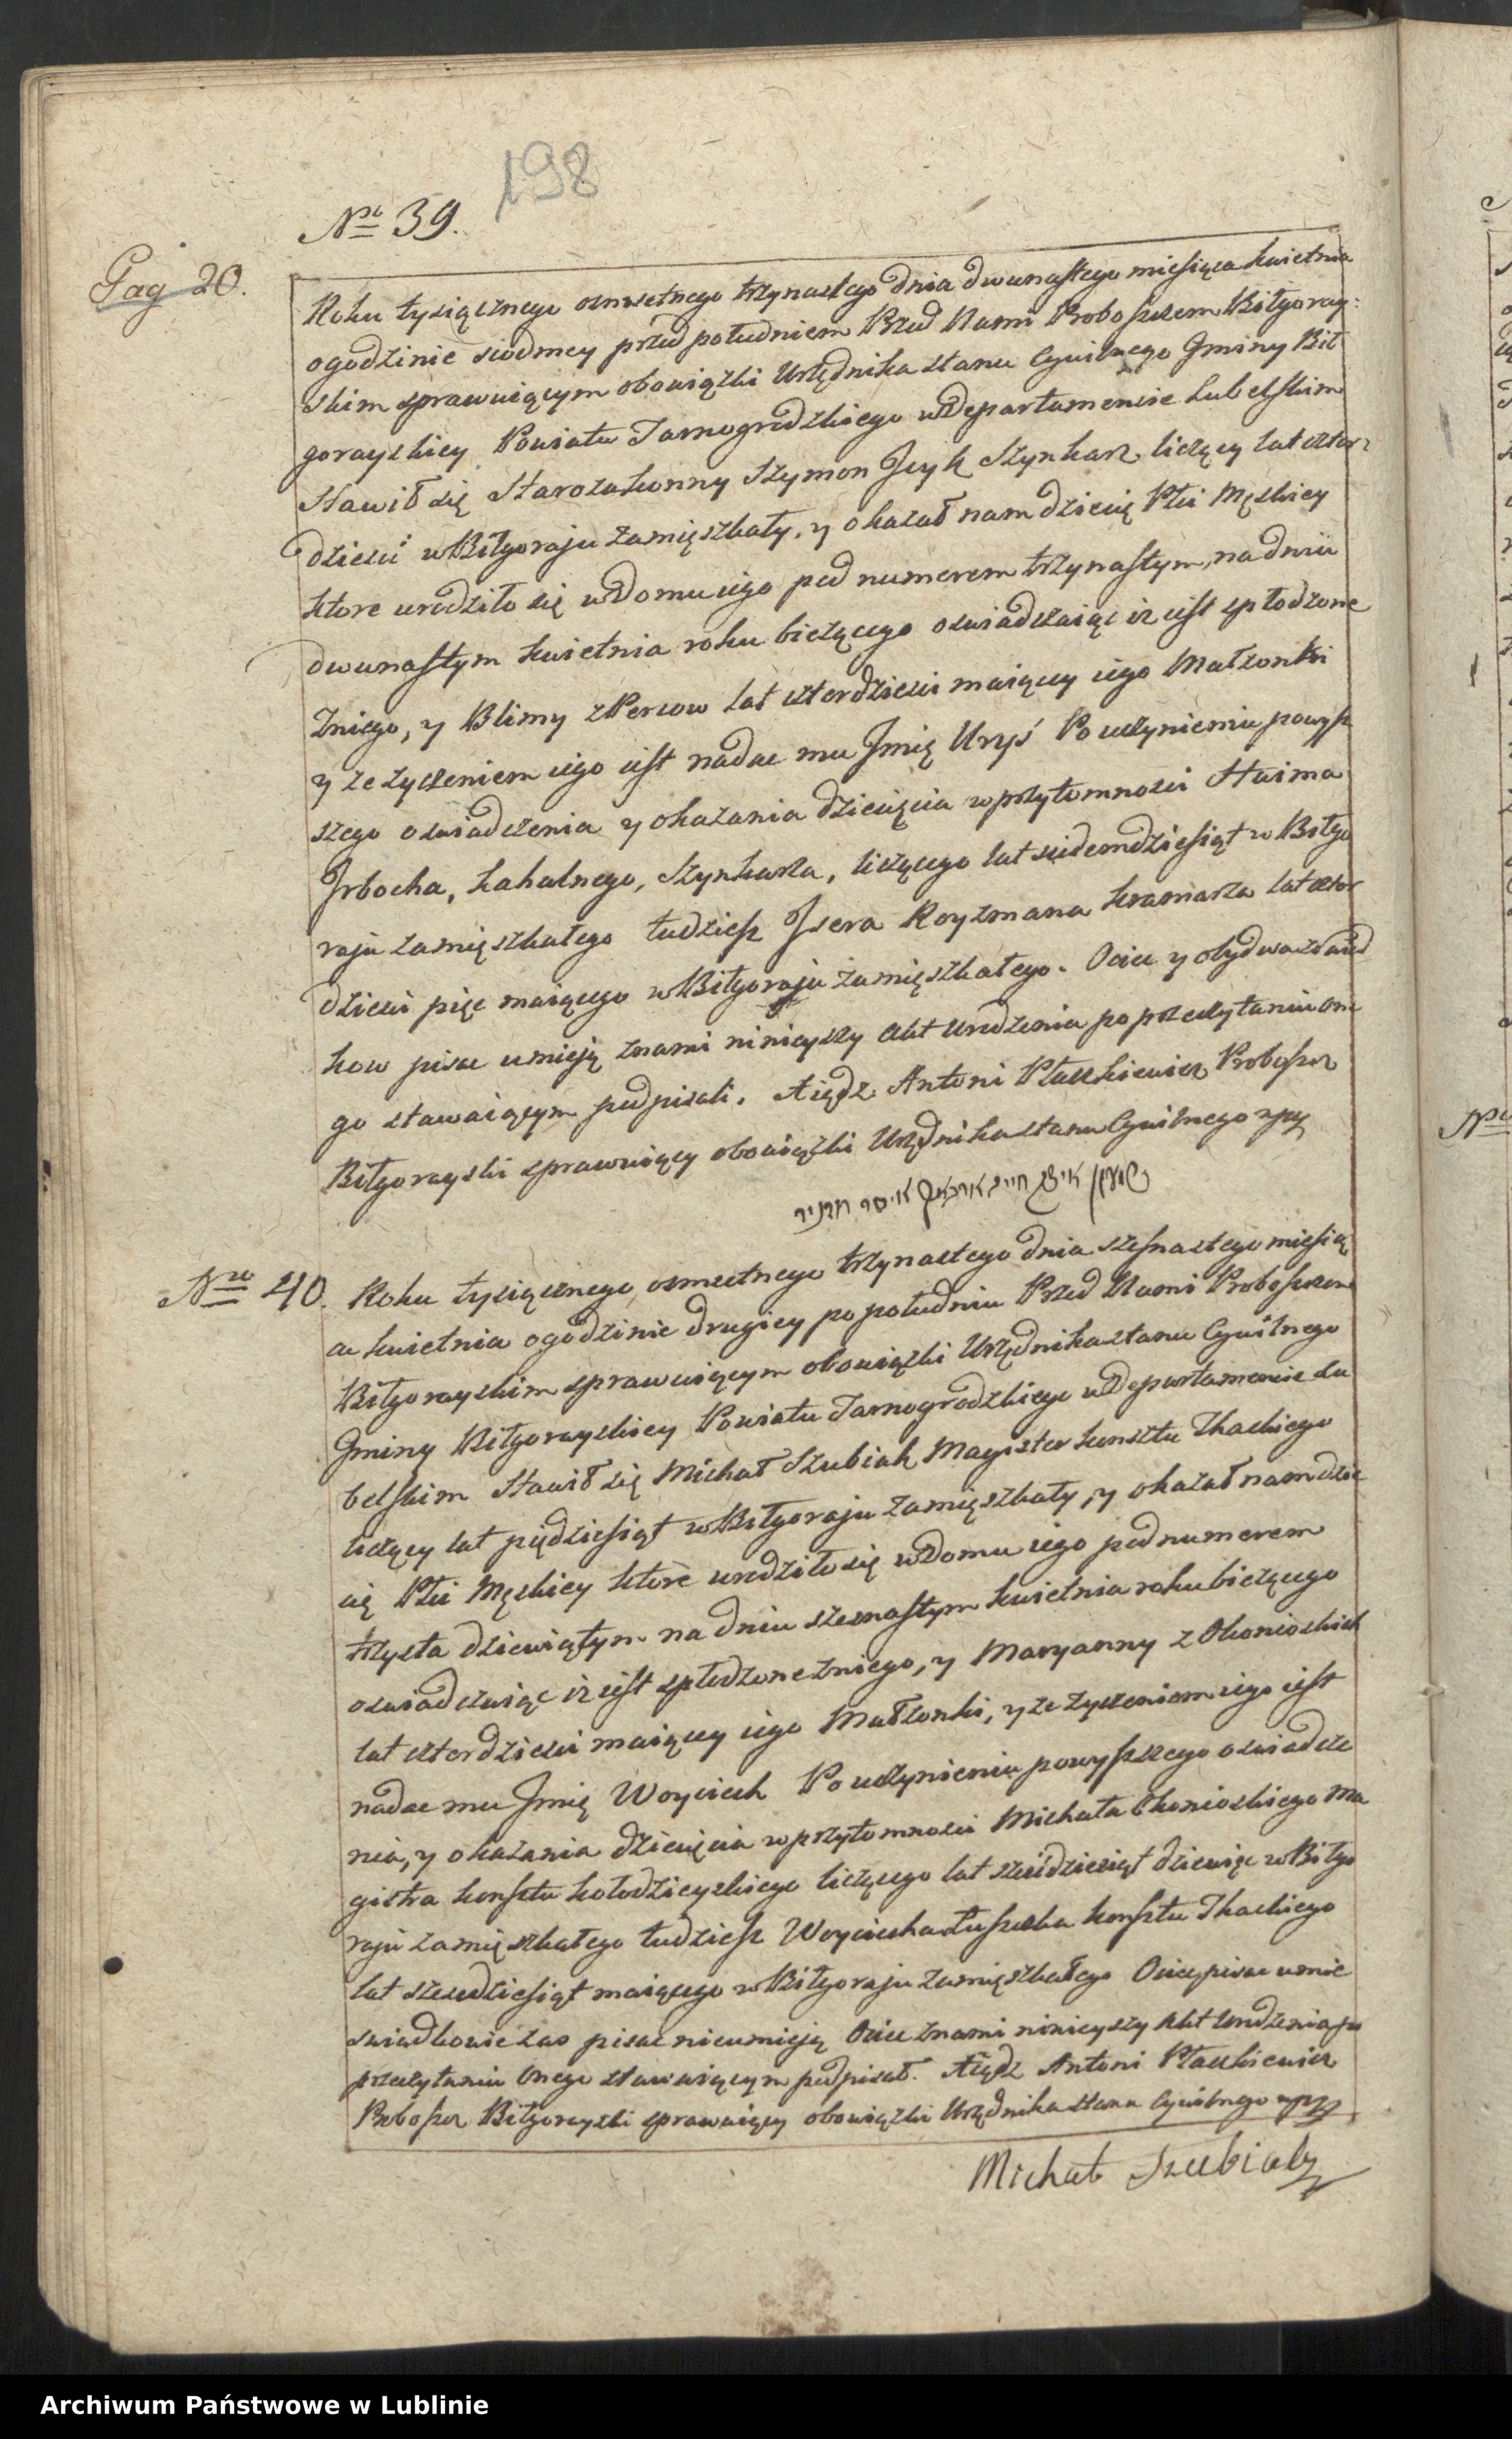 198
Nro 39.
Pag 20.
Roku tysiącznego osmsetnego trzynastego dnia dwunastego miesiąca kwietnia
ogodzinie siodmey przed południem Przed Nami Proboszczem Biłgoray:
skim sprawuiącym obowiązki Urzędnika stanu Cywilnego Gminy Bił
gorayskiey Powiatu Tarnogrodzkiego w Departamencie Lubelskim
Stawił się Starozakonny Szymon Jcyk Szynkarz liczący lat czter:
dzieści w Biłgoraju zamięszkały, y okazał nam dziecię Płci Męzkiey
ktore urodziło się w Domu iego pod numerem trzynastym, na dniu
dwunastym kwietnia roku bieżącego oswiadczaiąc iz iest spłodzone
zniego, y Blimy z Percow lat czterdzieści maiącey iego Małżonki
y ze życzeniem iego iest nadac mu Jmię Uryś Po uczynieniu powyż
szego oswiadczenia y okazania dziecięcia w przytomności Haima
Jrbocha, kahalnego, Szynkarza, liczącego lat siedemdziesiąt w Biłgo
raju zamięszkałego tudziesz Jsera Royzmana kramarza lat czter
dzieści pięc maiącego w Biłgoraju zamięszkałego. Ociec y obydwa swiad
kow pisac umieją znami ninieyszy Akt Urodzenia po przeczytaniu one
go stawaiącym podpisali. Xiądz Antoni Ptaszkiewicz Proboszcz
Biłgorayski sprawuiący obowiązki Urzędnika stanu Cywilnego mpp
Nro 40.
Roku tysiącznego osmsetnego trzynastego dnia szesnastego miesią
ca kwietnia ogodzinie drugiey po południu Przed Nami Proboszczem
Biłgorayskim sprawuiącym obowiązki Urzędnika stanu Cywilnego
Gminy Biłgorayskiey Powiatu Tarnogrodzkiego w Departamencie Lu
belskim Stawił się Michał Szubiak Magister kunsztu Tkackiego
liczący lat piędziesiąt w Biłgoraju zamięszkały, y okazał nam dzie
cię Płci Męzkiey ktore urodziło się w Domu iego pod numerem
trzysta dziewiątym na dniu szesnastym kwietnia roku bieżącego
oswiadczaiąc iz iest spłodzone zniego, y Maryanny z Okonioskich
lat czterdzieści maiącey iego Małżonki, y ze życzeniem iego iest
nadac mu Jmię Woyciech Po uczynieniu powyższego oswiadcze
nia, y okazania dziecięcia w przytomności Michała Okonioskiego Ma
gistra konsztu kołodzieyskiego liczącego lat sześdziesiąt dziewięc w Biłgo
raju zamięszkałego tudziesz Woyciecha Łuszczka konsztu Tkackiego
lat szesdziesiąt maiącego w Biłgoraju zamięszkałego Ociec pisac umie
swiadkowie zas pisac nieumieją Ociec znami ninieyszy Akt Urodzenia po
przeczytaniu Onego stawaiącym podpisał. Xiądz Antoni Ptaszkiewicz
Proboszcz Biłgorayski sprawuiący obowiązki Urzędnika stanu Cywilnego mpp
Michał Szubiak
Nro
Archiwum Państwowe w Lublinie